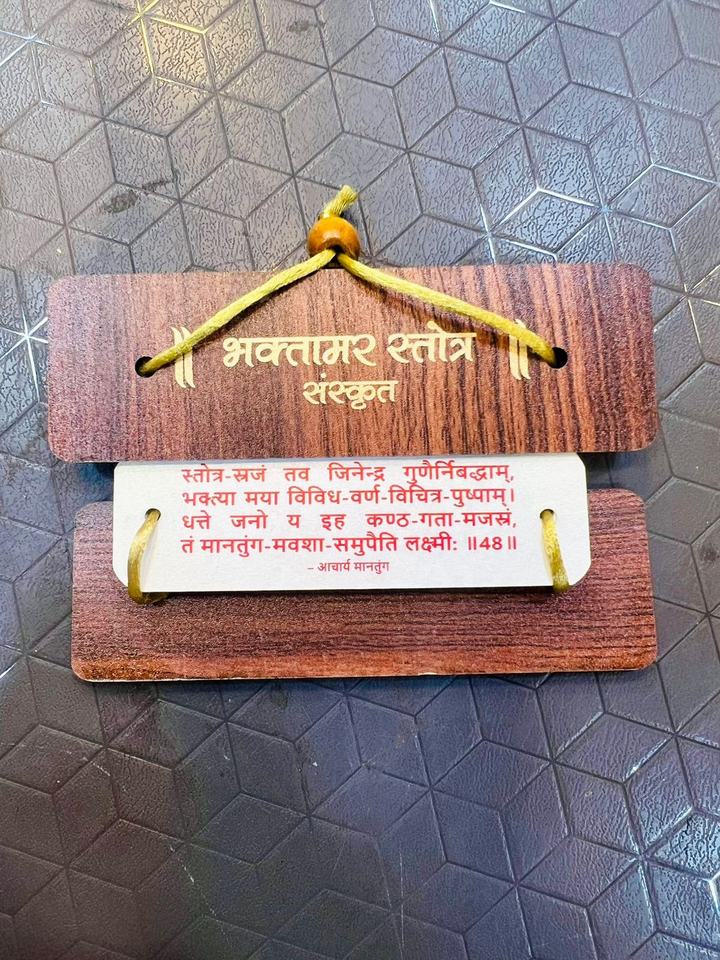 ॥ भक्तामर स्तोत्र ॥
संस्कृत
स्तोत्र-स्रजं तव जिनेन्द्र गुणैर्निबद्धाम्,
भक्त्या मया विविध-वर्ण-विचित्र-पुष्पाम्।
धत्ते जनो य इह कण्ठ-गता-मजस्रं,
तं मानतुंग-मवशा-समुपैति लक्ष्मी: ॥48॥
– आचार्य मानतुंग